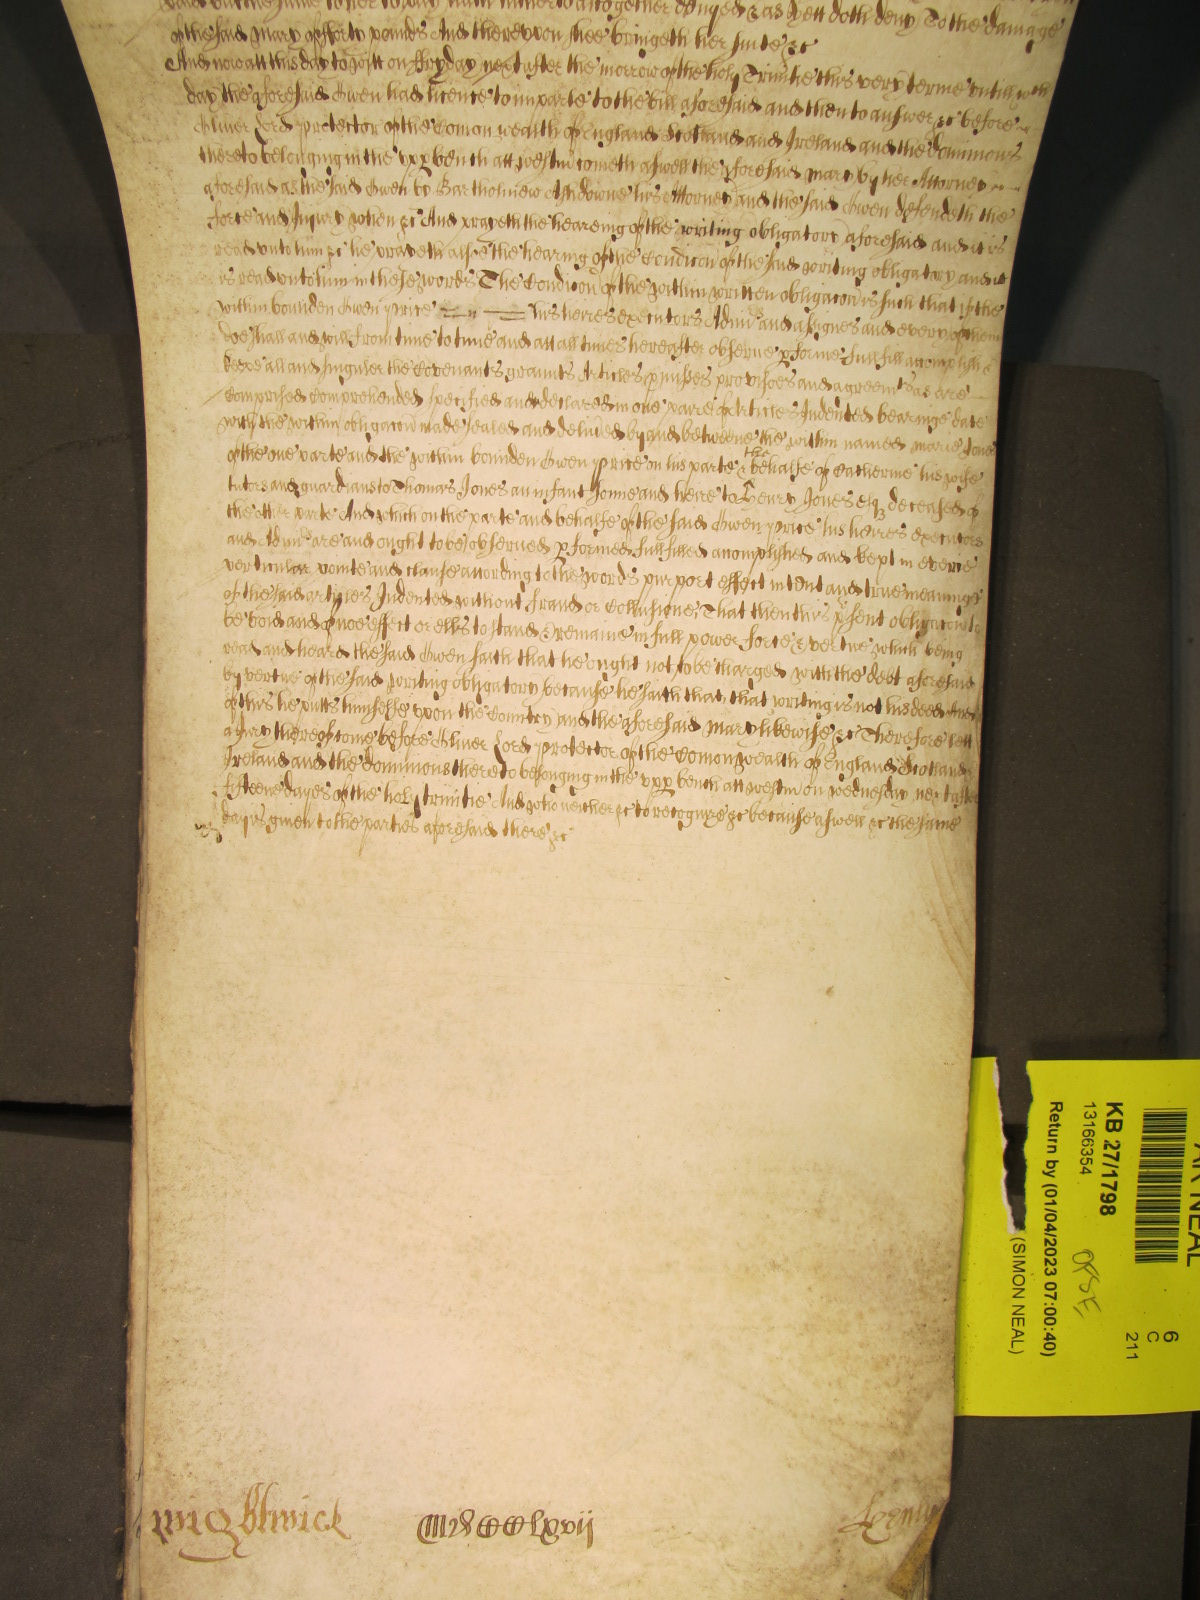 said but the same to her to pay hath hitherto altogether denyed & as yett doth deny To the damage
of the said Mary of forty pounds And thereupon shee bringeth her suite &c
And now att this day to witt on ffryday next after the morrow of the holy Trinitie this very terme untill which
day the aforesaid Owen had licence to imparle to the bill aforesaid and then to answer &c before
Oliver Lord protector of the Comon wealth of England Scotland and Ireland and the dominions
thereto belonging in the upp bench att westm cometh aswell the aforesaid Mary by her Attorney
aforesaid as the said Owen by Bartholmew Ashdowne his Attorney and the said Owen defendeth the
force and Injury when &c And prayeth the heareing of the writing obligatory aforesaid and it is
read unto him &c he prayeth alsoe the hearing of the Condicon of the said writing obligatory and it
is read unto him in these words The Condicon of the within written obligacon is such that if the
within bounden Owen price his heires executors Admrs and assignes and every of them
doe shall and will from time to time and att all times hereafter observe pforme fullfill accomplish &
keepe all and singuler the Covenants graunts Articles pmisses provisoes and agreemts as are
Comprised comprehended specified and declared in one paire of Articles Indented bearinge date
with the within obligacon made sealed and delived by and betweene the within named Marie Jones
of the one parte and the within bounden Owen price on his parte & the behalfe of Catherine his wife
tutors and guardians to Thomas Jones an infant sonne and heire to Henry Jones esq deceased of
the other parte And which on the parte and behalfe of the said Owen price his heires executors
and Admrs are and ought to be observed pformed fullfilled accomplished and kept in everie
perticular pointe and clause according to the words purport effect intent and true meaninge
of the said articles Indented without fraud or Collusione, That then this psent obligacon to
be void and of noe effect or else to stand & remaine in full power force & vertue which being
read and heard the said Owen saith that he ought not to be charged with the debt aforesaid
by vertue of the said writing obligatory because he saith that, that writing is not his deed And
of this he putts himselfe upon the Country and the aforesaid Mary likewise &c Therefore lett
a Jury thereof come before Oliver Lord protector of the Comon wealth of England Scotland
Ireland and the dominions thereto belonging in the upp bench att westm on wednesday next after
fifteene dayes of the holy trinitie And who neither &c to recognize &c because aswell &c the same
day is given to the parties aforesaid there &c
KB 27/1798
13166354
Return by (01/04/2023 07:00:40)
(SIMON NEAL)
6
C
211